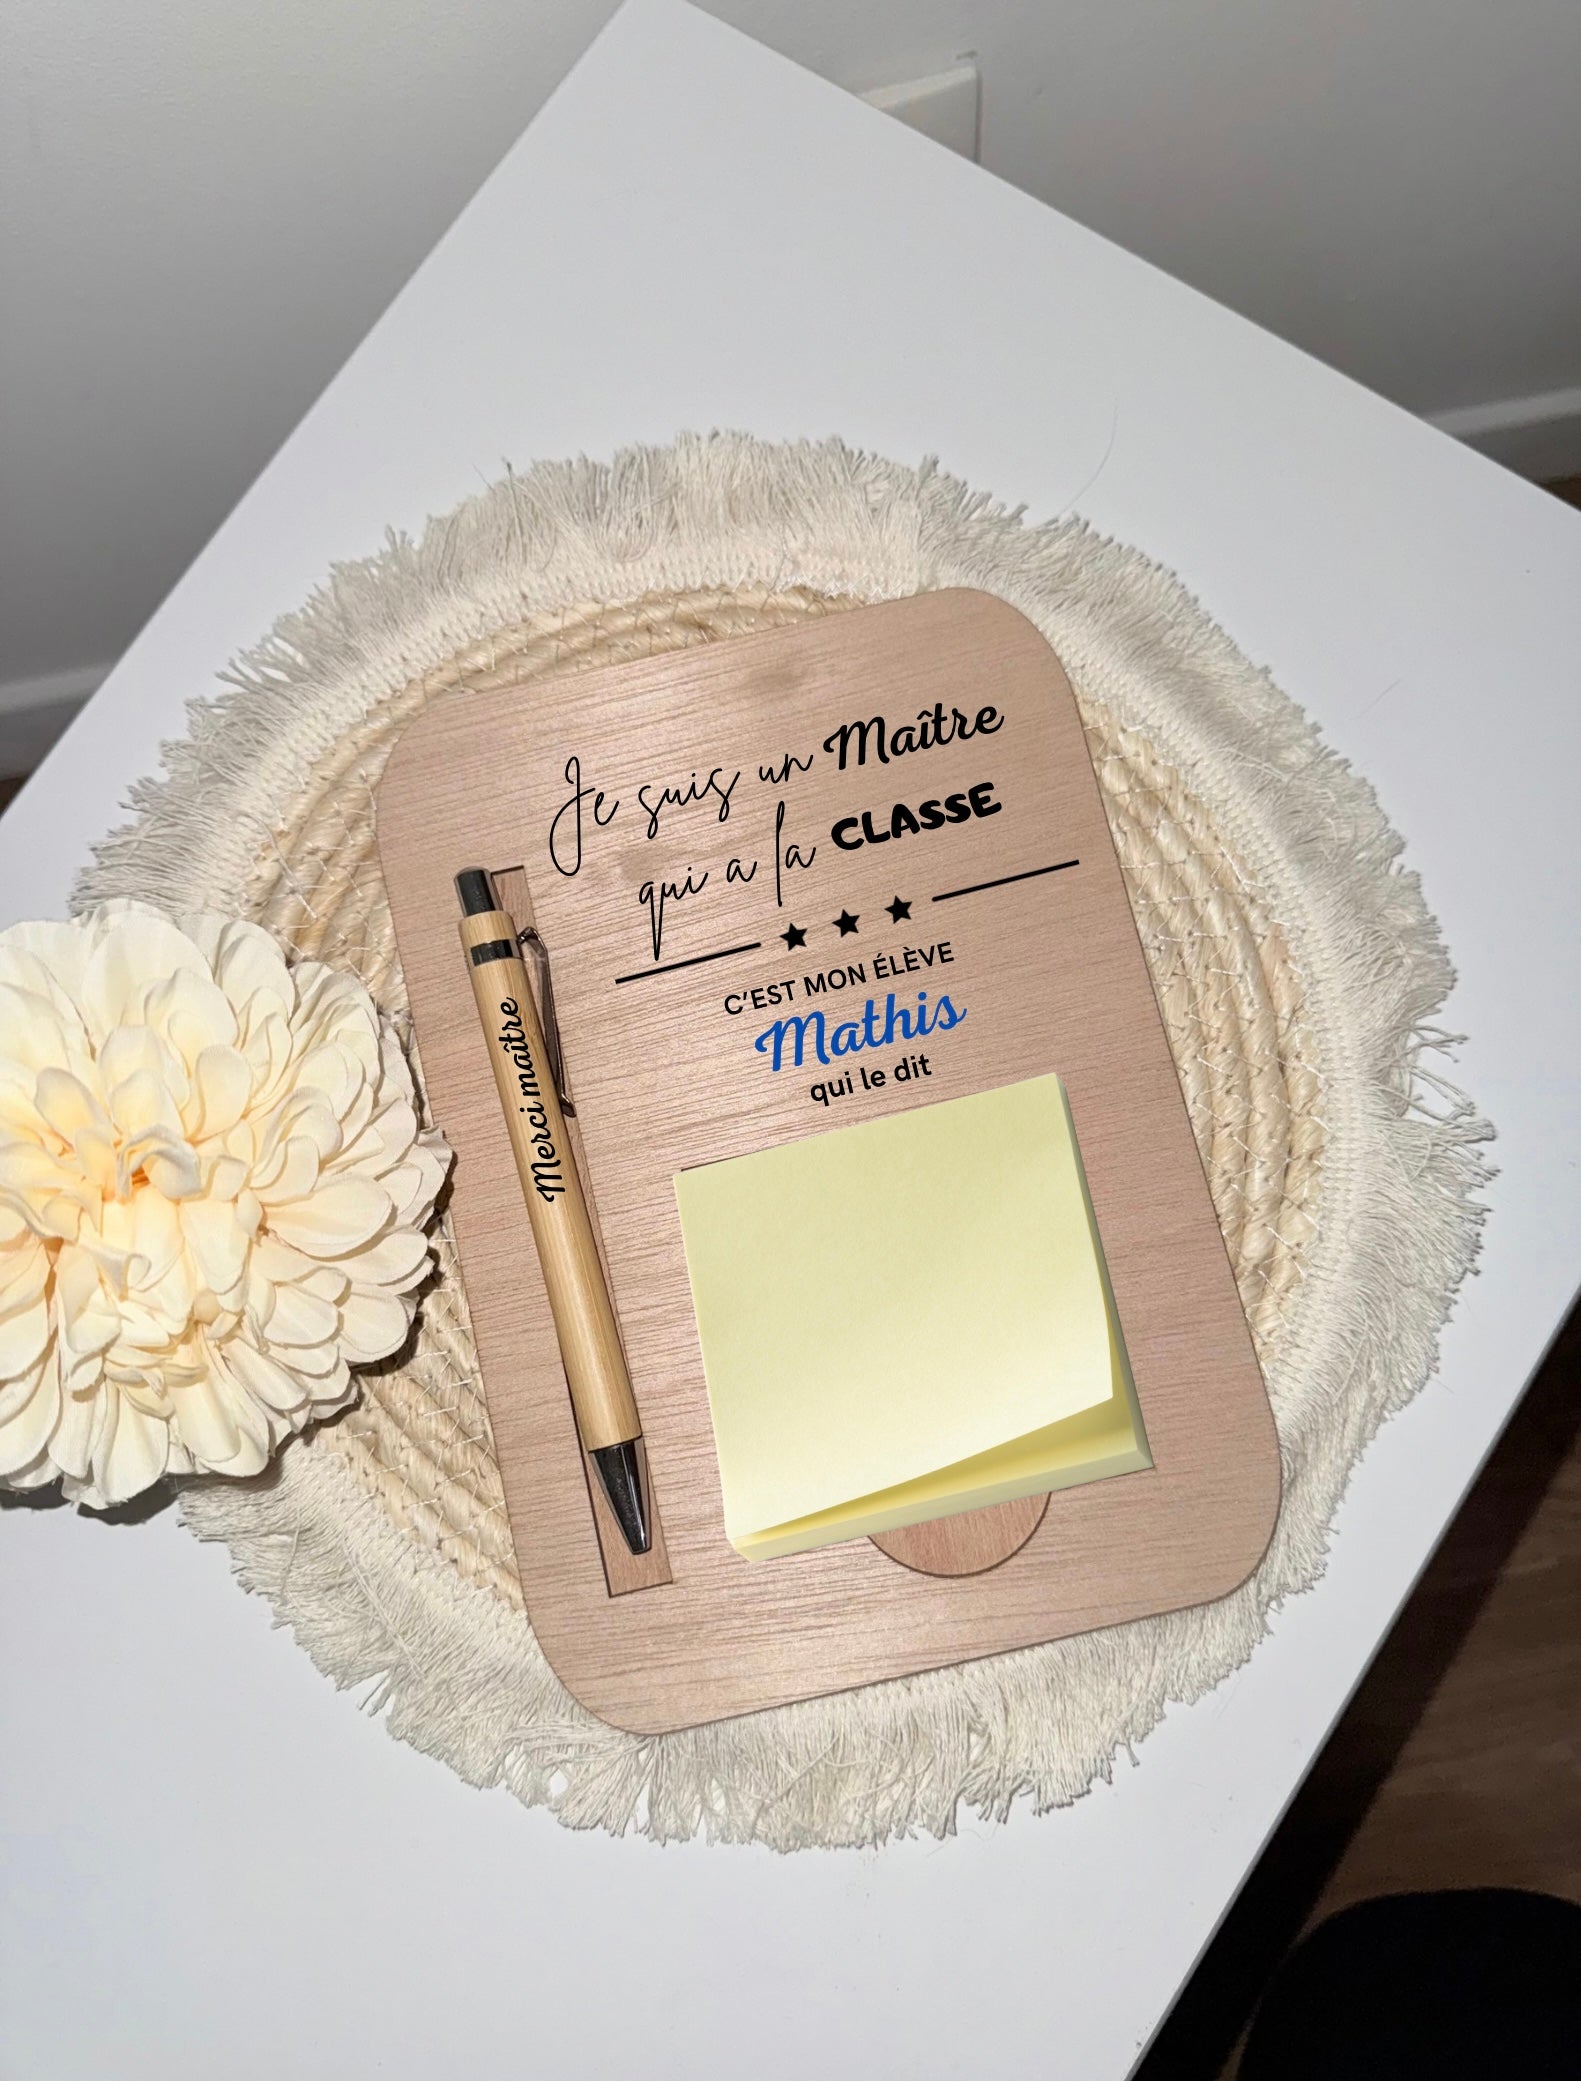 Je suis un Maître
qui a la CLASSE
C'EST MON ÉLÈVE
Mathis
qui le dit
Merci maître